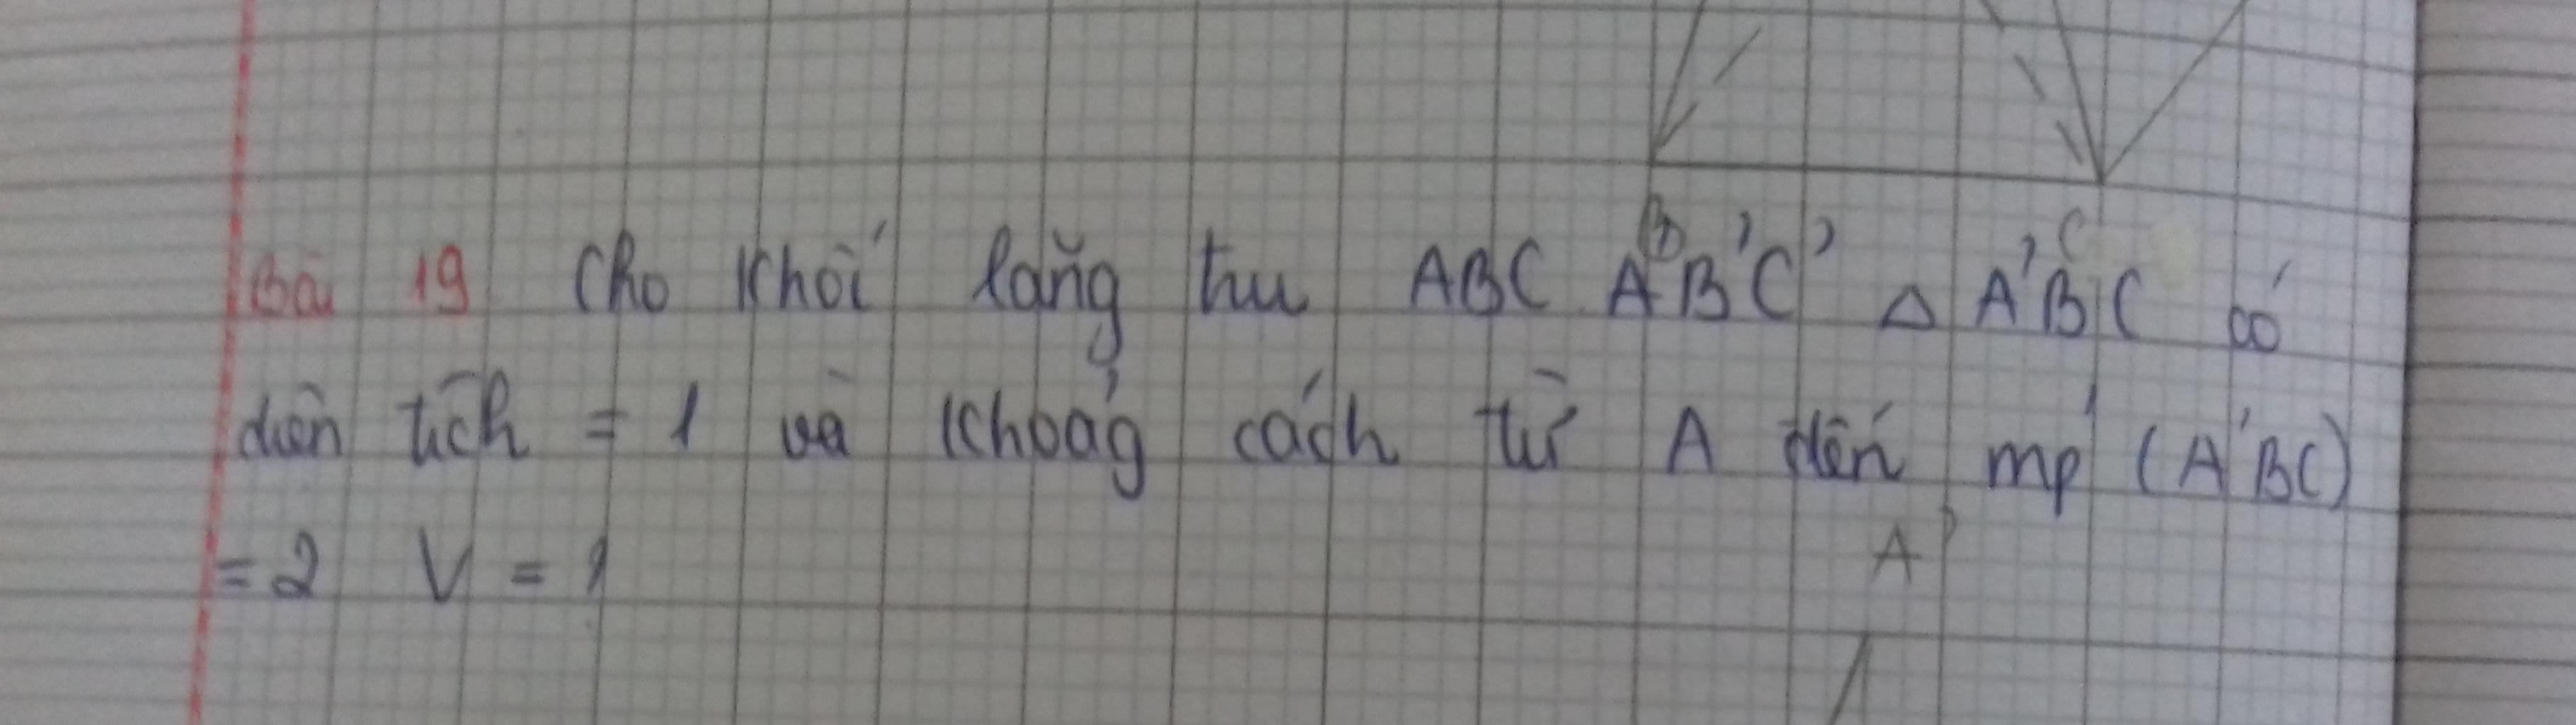 B
C
Bài 19 Cho khối lăng trụ ABC A'B'C' Δ A'BC có
diện tích = 1 và khoảg cách từ A đến mp (A'BC)
= 2 V = ?
A'